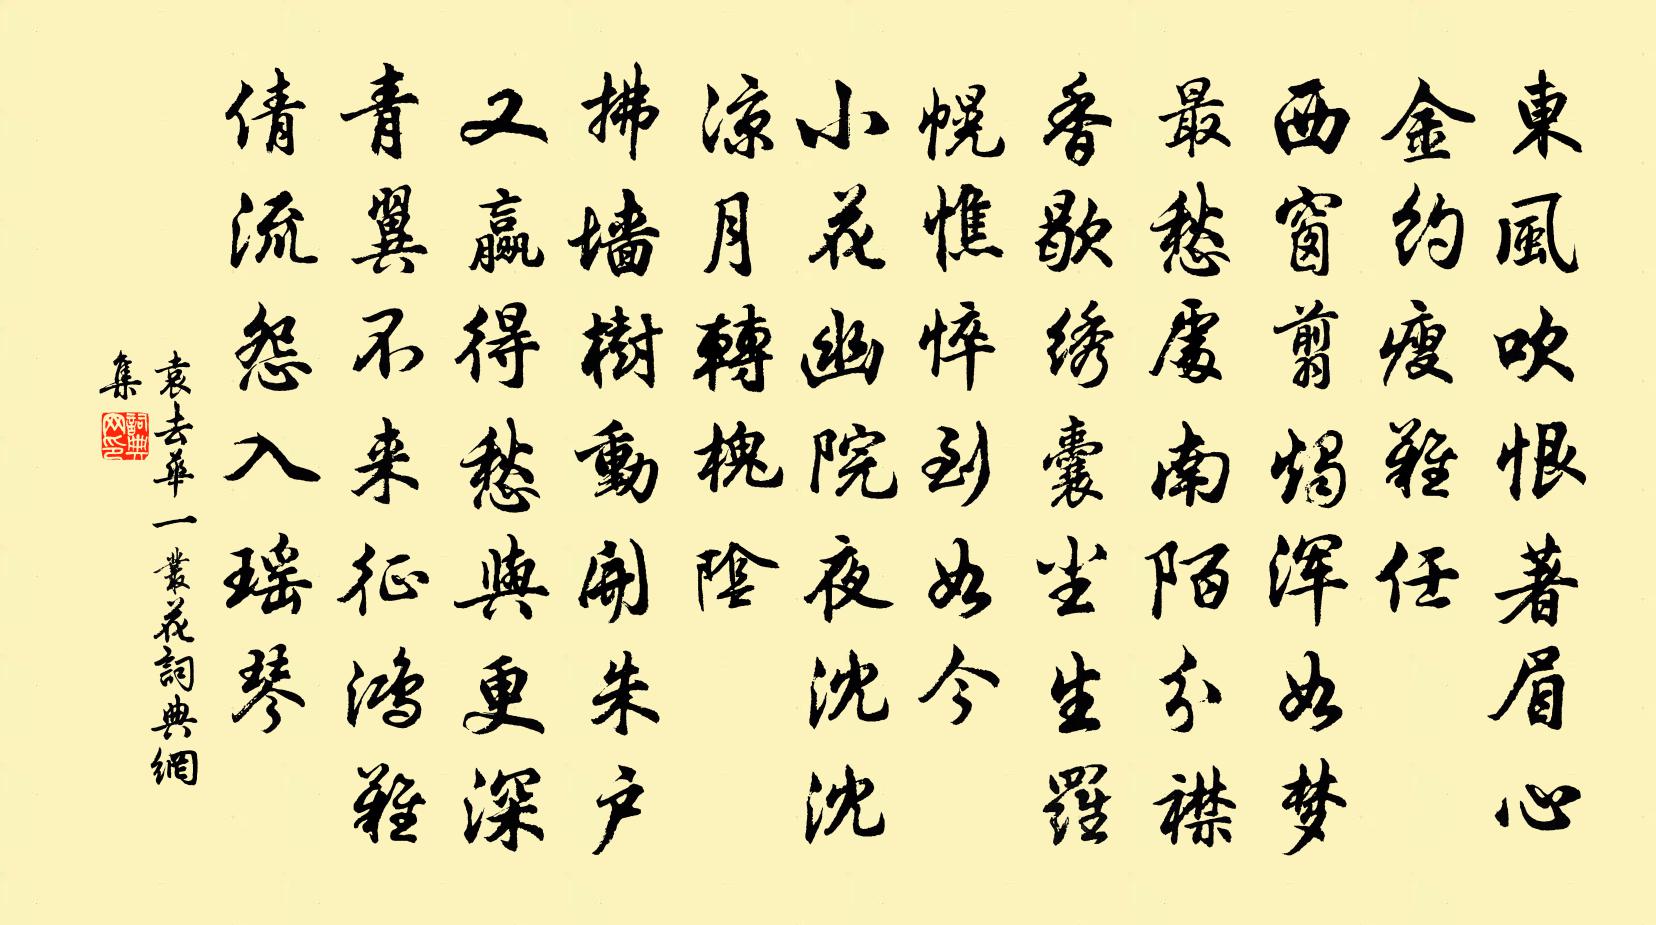 東風吹恨著眉心
金約瘦難任
西窗翦燭渾如夢
最愁處南陌分襟
香歇绣囊尘生羅
幌憔悴到如今
小花幽院夜沈沈
涼月轉槐陰
拂墙樹動開朱户
又贏得愁與更深
青翼不来征鴻難
倩流怨入瑶琴
袁去華一叢花詞典網
集
詞典
网印